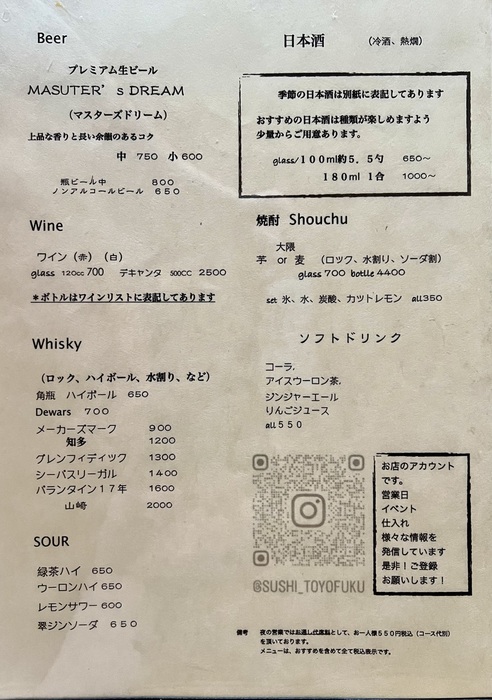 Beer
プレミアム生ビール
MASUTER’s DREAM
（マスターズドリーム）
上品な香りと長い余韻のあるコク
中 750 小600
瓶ビール中 800
ノンアルコールビール 650
Wine
ワイン（赤）（白）
glass 120cc 700 デキャンタ 500CC 2500
＊ボトルはワインリストに表記してあります
Whisky
（ロック、ハイボール、水割り、など）
角瓶 ハイボール 650
Dewars 700
メーカーズマーク 900
知多 1200
グレンフィディック 1300
シーバスリーガル 1400
バランタイン17年 1600
山崎 2000
SOUR
緑茶ハイ 650
ウーロンハイ 650
レモンサワー 600
翠ジンソーダ 650
日本酒 （冷酒、熱燗）
季節の日本酒は別紙に表記してあります
おすすめの日本酒は種類が楽しめますよう
少量からご用意あります。
glass/100ml約5.5勺 650～
180ml 1合 1000～
焼酎 Shouchu
大隈
芋 or 麦 （ロック、水割り、ソーダ割）
glass 700 bottle 4400
set 氷、水、炭酸、カットレモン all350
ソフトドリンク
コーラ,
アイスウーロン茶,
ジンジャーエール
りんごジュース
all 550
@SUSHI_TOYOFUKU
お店のアカウント
です。
営業日
イベント
仕入れ
様々な情報を
発信しています
是非！ご登録
お願いします！
備考 夜の営業ではお通し代席料として、お一人様550円税込（コース代別）
を頂いております。
メニューは、おすすめを含めて全て税込表示です。